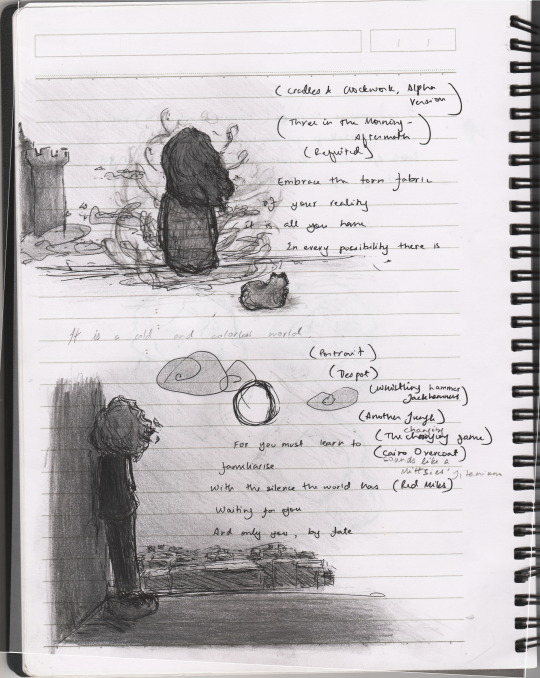 (Cradles & Clockwork, Alpha
Version)
(Three in the Morning -
Aftermath
(Refuited)
Embrace the torn fabric
of your reality
It is all you have
In every possibility there is
It is a cold and colorless world
(Portrait)
(Despot)
(Whistling hammer
Jackhammer)
(Another Jungle)
changing
(The game)
For you must learn to
(Cairo Overcoat)
familiarise
sounds like a
With the silence the world has (Red Miles)
Waiting for you
And only you, by fate